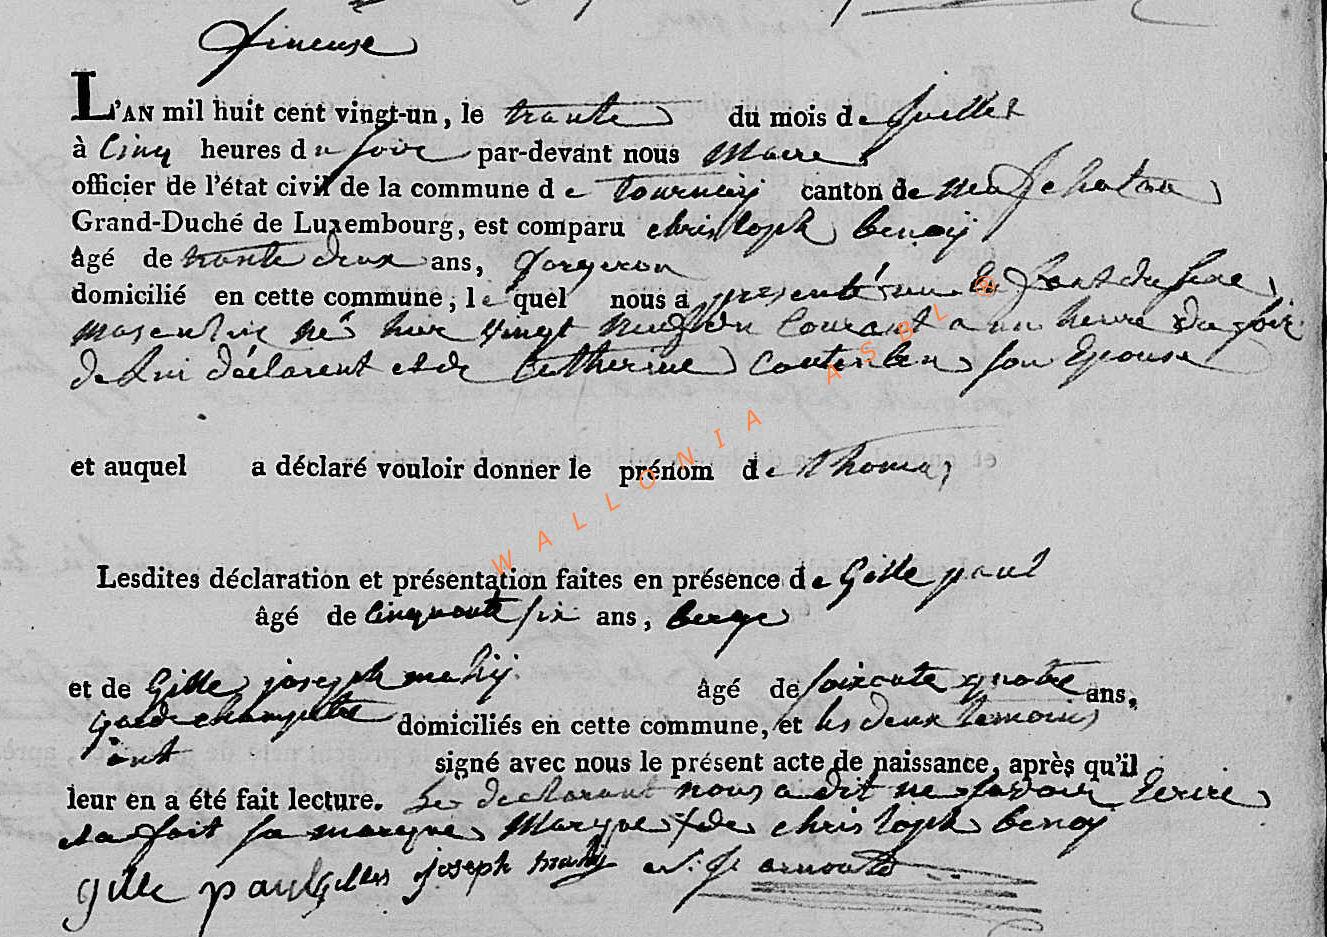 fineuse
L'AN mil huit cent vingt-un, le trante du mois de Juillet
à Cinq heures du soire par-devant nous Maire
officier de l'état civil de la commune de tournay canton de neufchatau
Grand-Duché de Luxembourg, est comparu christoph benoy
âgé de trante deux ans, forgeron
domicilié en cette commune, lequel nous a presenté un enfant du sexe
masculin né hier vingt neuf du Courant a un heure du soir
de Lui déclarent et de Catherine son Epouse
et auquel a déclaré vouloir donner le prénom de thomas
Lesdites déclaration et présentation faites en présence de Gille paul
âgé de cinquante six ans, berge
et de Gille joseph mahy âgé de soixante quatre ans,
garde champetre domiciliés en cette commune, et les deux temoins
ont signé avec nous le présent acte de naissance, après qu'il
leur en a été fait lecture. Le declarant nous a dit ne savoir Ecrire
et a fait sa marque Marque x de christoph benoy
gille paul gilles joseph mahy arnould
WALLONIA ASBL ®